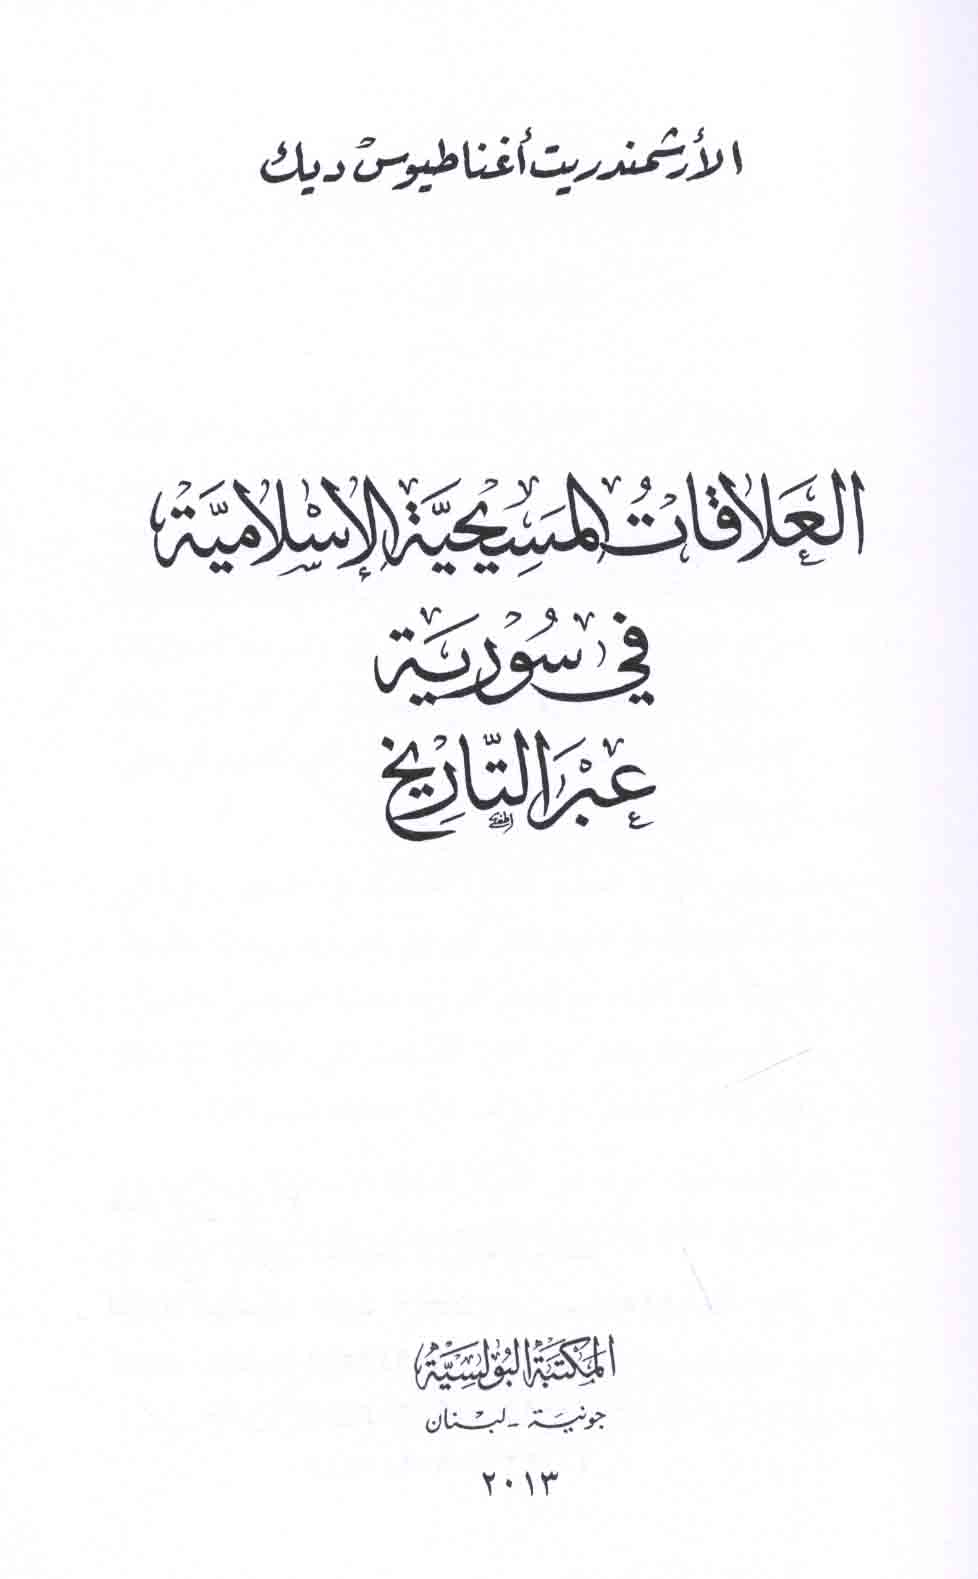 الأرشمندريت أغناطيوس ديك
العلاقات المسيحيّة الإسلاميّة
في سورية
عبر التّاريخ
المكتبة البولسيّة
جونية - لبنان
٢٠١٣